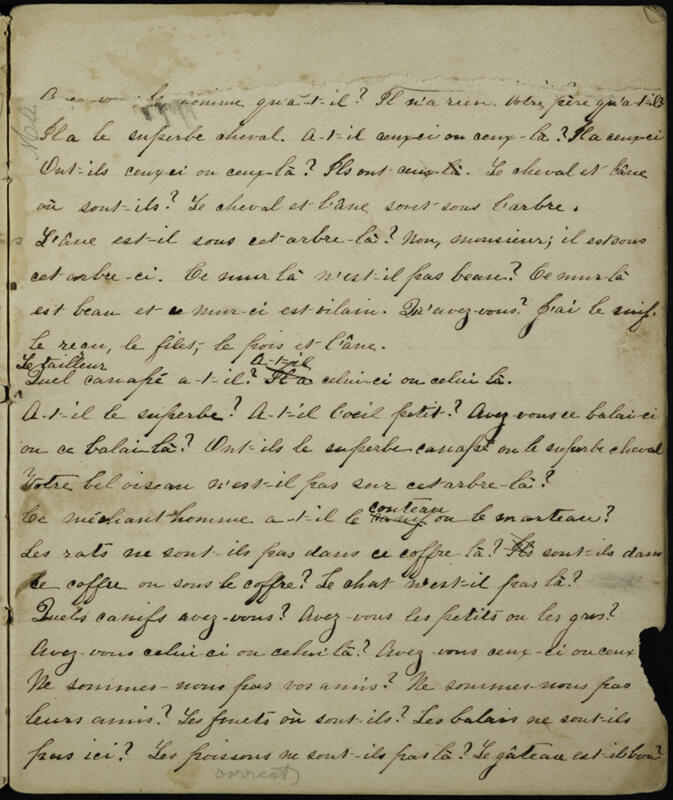 homme qu'a-t-il? Il n'a rien. Votre père qu'a-t-il?
Il a le superbe cheval. A-t-il ceux-ci ou ceux-là? Il a ceux-ci
Ont-ils ceux-ci ou ceux-là? Ils ont ceux-là. Le cheval et l'âne
où sont-ils? Le cheval et l'âne sont sous l'arbre.
L'âne est-il sous cet arbre-là? Non, monsieur; il est sous
cet arbre-ci. Ce mur là n'est-il pas beau? Ce mur-là
est beau et ce mur-ci est vilain. Qu'avez-vous? J'ai le suif,
le reçu, le filet, le pois et l'âne.
Le tailleur A-t-il
Quel canapé a-t-il? Il a celui-ci ou celui là.
A-t-il le superbe? A-t-il l'oeil petit? Avez-vous ce balai-ci
ou ce balai là? Ont-ils le superbe canapé ou le superbe cheval
Votre bel oiseau n'est-il pas sur cet arbre-là?
couteau
Ce méchant homme a-t-il le canif ou le marteau?
Les rats ne sont-ils pas dans ce coffre là? Ils sont-ils dans
le coffre ou sous le coffre? Le chat n'est-il pas là?
Quels canifs avez-vous? Avez-vous les petits ou les gros?
Avez-vous celui-ci ou celui là? Avez-vous ceux-ci ou ceux
Ne sommes-nous pas vos amis? Ne sommes-nous pas
leurs amis? Les fouets où sont-ils? Les balais ne sont-ils
pas ici? Les poissons ne sont-ils pas là? Le gâteau est-il bon?
correct